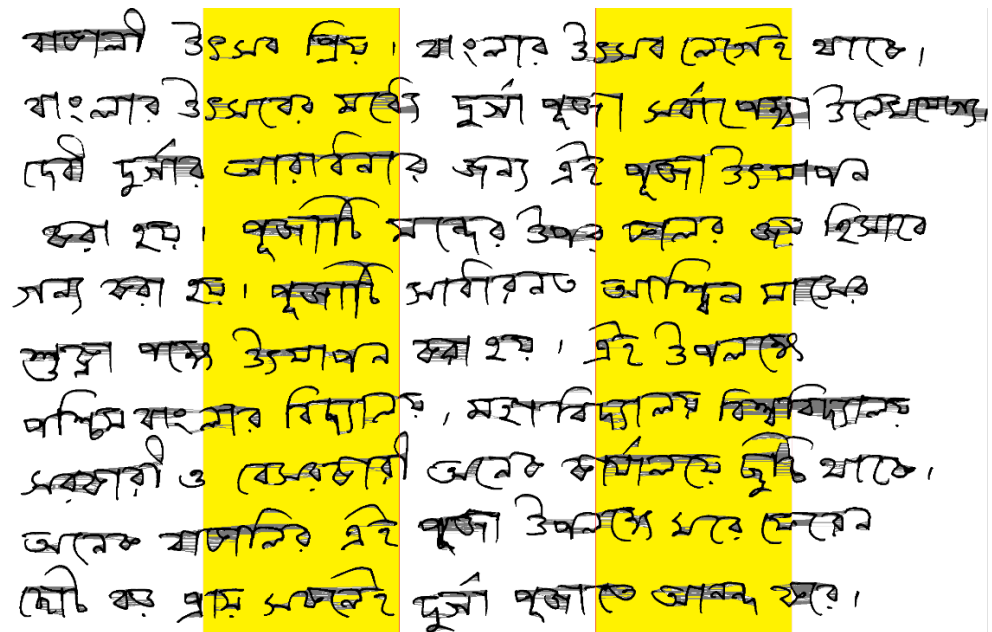 বাঙালী উৎসব প্রিয়। বাংলার উৎসব লেগেই থাকে।
বাংলার উৎসবের মধ্যে দুর্গা পূজা সর্বাপেক্ষা উল্লেখযোগ্য,
দেবী দুর্গার আরাধনার জন্য এই পূজা উৎযাপন
করা হয়। পূজাটি মন্দের উপর ভালর জয় হিসাবে
গন্য করা হয়। পূজাটি সাধারনত আশ্বিন মাসের
শুক্লা পক্ষে উৎযাপন করা হয়। এই উপলক্ষে
পশ্চিম বাংলার বিদ্যালয়, মহাবিদ্যালয় বিশ্ববিদ্যালয়
সরকারী ও বেসরকারী অনেক কার্যালয়ে ছুটি থাকে।
অনেক বাঙালির এই পূজা উপলক্ষে ঘরে ফেরেন
ছোট বড় প্রায় সকলেই দুর্গা পূজাতে আনন্দ করে।